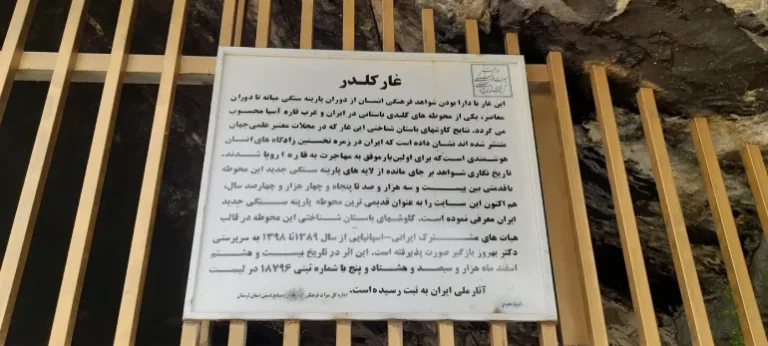 غار کلدر
این غار با دارا بودن شواهد فرهنگی انسان از دوران پارینه سنگی میانه تا دوران
معاصر، یکی از محوطه های کلیدی باستانی در ایران و غرب قاره آسیا محسوب
می گردد. نتایج کاوشهای باستان شناختی این غار که در مجلات معتبر علمی جهان
منتشر شده اند نشان داده است که ایران در زمره نخستین زادگاه های انسان
هوشمندی است که برای اولین بار موفق به مهاجرت به قاره اروپا شدند.
تاریخ نگاری شواهد بر جای مانده از لایه های پارینه سنگی جدید این محوطه
با قدمتی بین بیست و سه هزار و صد تا پنجاه و چهار هزار و چهارصد سال،
هم اکنون این سایت را به عنوان قدیمی ترین محوطه پارینه سنگی جدید
ایران معرفی نموده است. کاوشهای باستان شناختی این محوطه در قالب
هیات های مشترک ایرانی-اسپانیایی از سال ۱۳۸۹ تا ۱۳۹۸ به سرپرستی
دکتر بهروز بازگیر صورت پذیرفته است. این اثر در تاریخ بیست و هشتم
اسفند ماه هزار و سیصد و هشتاد و پنج با شماره ثبتی ۱۸۷۹۶ در لیست
آثار ملی ایران به ثبت رسیده است.
اداره کل میراث فرهنگی و صنایع دستی استان لرستان